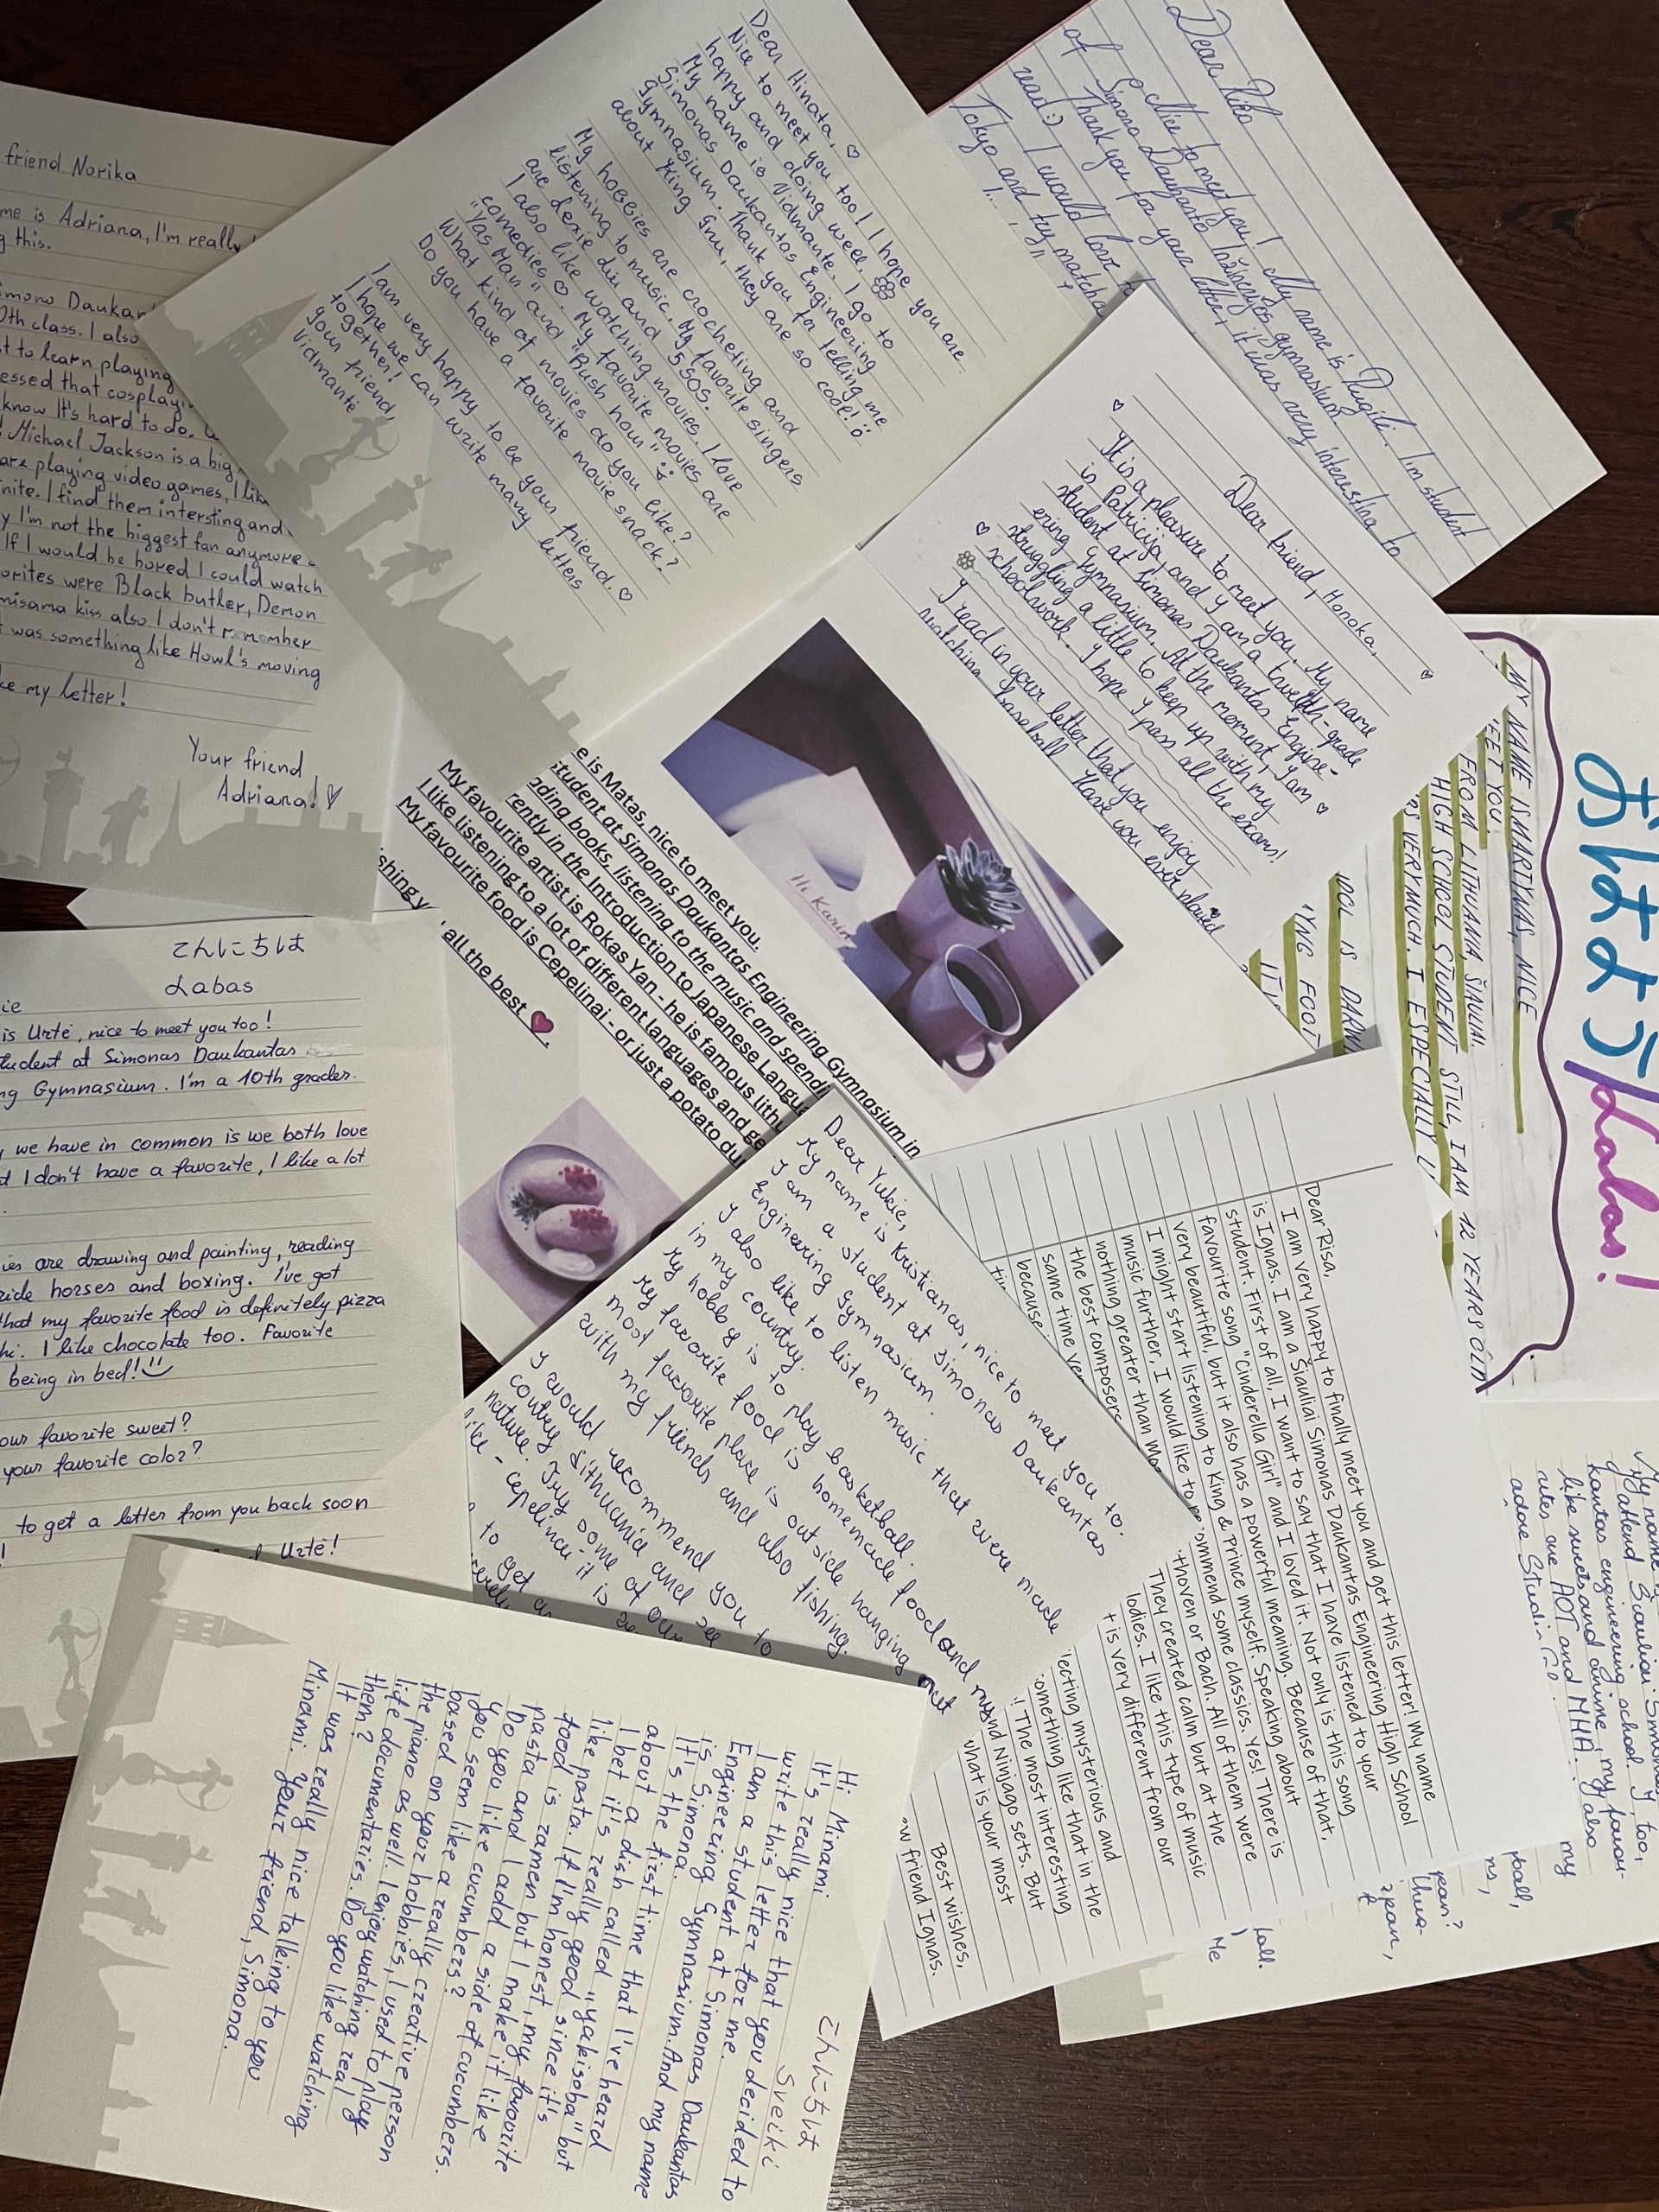 friend Norika
me is Adriana, I'm really
g this.
imono Daukan
0th class. I also
t to learn playing
essed that cosplayi
know It's hard to do.
! Michael Jackson is a big
are playing video games, I lik
nite. I find them intersting and
y I'm not the biggest fan anymore
If I would be bored I could watch
orites were Black butler, Demon
misama kiss also I don't remember
t was something like Howl's moving
ke my letter!
Your friend
Adriana! ♡
Dear Hinata, ♡
Nice to meet you too! I hope you are
happy and doing well.
My name is Vidmantė. I go to
Simonas Daukantas Engineering
Gymnasium. Thank you for telling me
about King Gnu, they are so cool!
My hobbies are crocheting and
listening to music. My favorite singers
are Lexie Liu and 5SOS.
I also like watching movies. I love
comedies ♡. My favorite movies are
"Yas Man" and "Rush hour"
What kind of movies do you like?
Do you have a favorite movie snack?
I am very happy to be your friend. ♡
I hope we can write many letters
together!
Your friend,
Vidmantė
Dear Riko
Nice to meet you! My name is Rugilė. I'm student
of Simono Daukanto Inžinerijos gymnasium.
Thank you for your letter, it was very interesting to
read :) I would love to
Tokyo and try matcha
Dear friend, Honoka,
It is a pleasure to meet you. My name
is Patricija, and I am a twelfth-grade
student at Simonas Daukantas Engine-
ering Gymnasium. At the moment, I am
struggling a little to keep up with my
schoolwork. I hope I pass all the exams!
I read in your letter that you enjoy
watching baseball. Have you ever played
Hi Karin
e is Matas, nice to meet you.
student at Simonas Daukantas Engineering Gymnasium in
ading books, listening to the music and spendi
rently in the Introduction to Japanese Langua
My favourite artist is Rokas Yan - he is famous lith
I like listening to a lot of different languages and ge
My favourite food is Cepelinai - or just a potato du
shing y
all the best
おはよう/Labas!
MY NAME IS MARTYNAS, NICE
EET YOU.
FROM LITHUANIA, ŠIAULIAI.
HIGH SCHOOL STUDENT STILL, I AM 12 YEARS OLD
VERY MUCH. I ESPECIALLY
YNG FOOT
こんにちは
Labas
ie
is Urtė, nice to meet you too!
tudent at Simonas Daukantas
ng Gymnasium. I'm a 10th grader.
we have in common is we both love
t I don't have a favorite, I like a lot
ies are drawing and painting, reading
ride horses and boxing. I've got
that my favorite food is definitely pizza
hi. I like chocolate too. Favorite
being in bed!
our favorite sweet?
your favorite color?
to get a letter from you back soon
Urtė!
Dear Yukie,
My name is Kristianas, nice to meet you to.
I am a student at Simonas Daukantas
Engineering Gymnasium.
I also like to listen music that were made
in my country.
My hobby is to play basketball.
My favorite food is homemade food and
most favorite place is outside hanging out
with my friends and also fishing.
I would recommend you to
country Lithuania and see
nature. Try some of our
like - cepelinai it is
to get an
Dear Risa,
I am very happy to finally meet you and get this letter! My name
is Ignas. I am a Šiauliai Simonas Daukantas Engineering High School
student. First of all, I want to say that I have listened to your
favourite song "Cinderella Girl" and I loved it. Not only is this song
very beautiful, but it also has a powerful meaning. Because of that,
I might start listening to King & Prince myself. Speaking about
music further, I would like to recommend some classics. Yes! There is
nothing greater than Mo thoven or Bach. All of them were
the best composers They created calm but at the
same time ver lodies. I like this type of music
because t is very different from our
lecting mysterious and
omething like that in the
! The most interesting
nd Ninjago sets. But
what is your most
Best wishes,
w friend Ignas.
I attend Šiauliai Simonas
kantas engineering school. I, too,
like sweets and anime, my favou-
rites are AOT and MHA. I also
adore Studio my
Me
こんにちは
Sveiki
Hi Minami
It's really nice that you decided to
write this letter for me.
I am a student at Simonas Daukantas
Engineering Gymnasium. And my name
is Simona.
It's the first time that I've heard
about a dish called "yakisoba" but
I bet it's really good since it's
like pasta. If I'm honest, my favourite
food is ramen but I make it like
pasta and I add a side of cucumbers.
Do you like cucumbers?
You seem like a really creative person
based on your hobbies, I used to play
the piano as well. I enjoy watching real
life documentaries. Do you like watching
them?
It was really nice talking to you
Minami. Your friend, Simona.